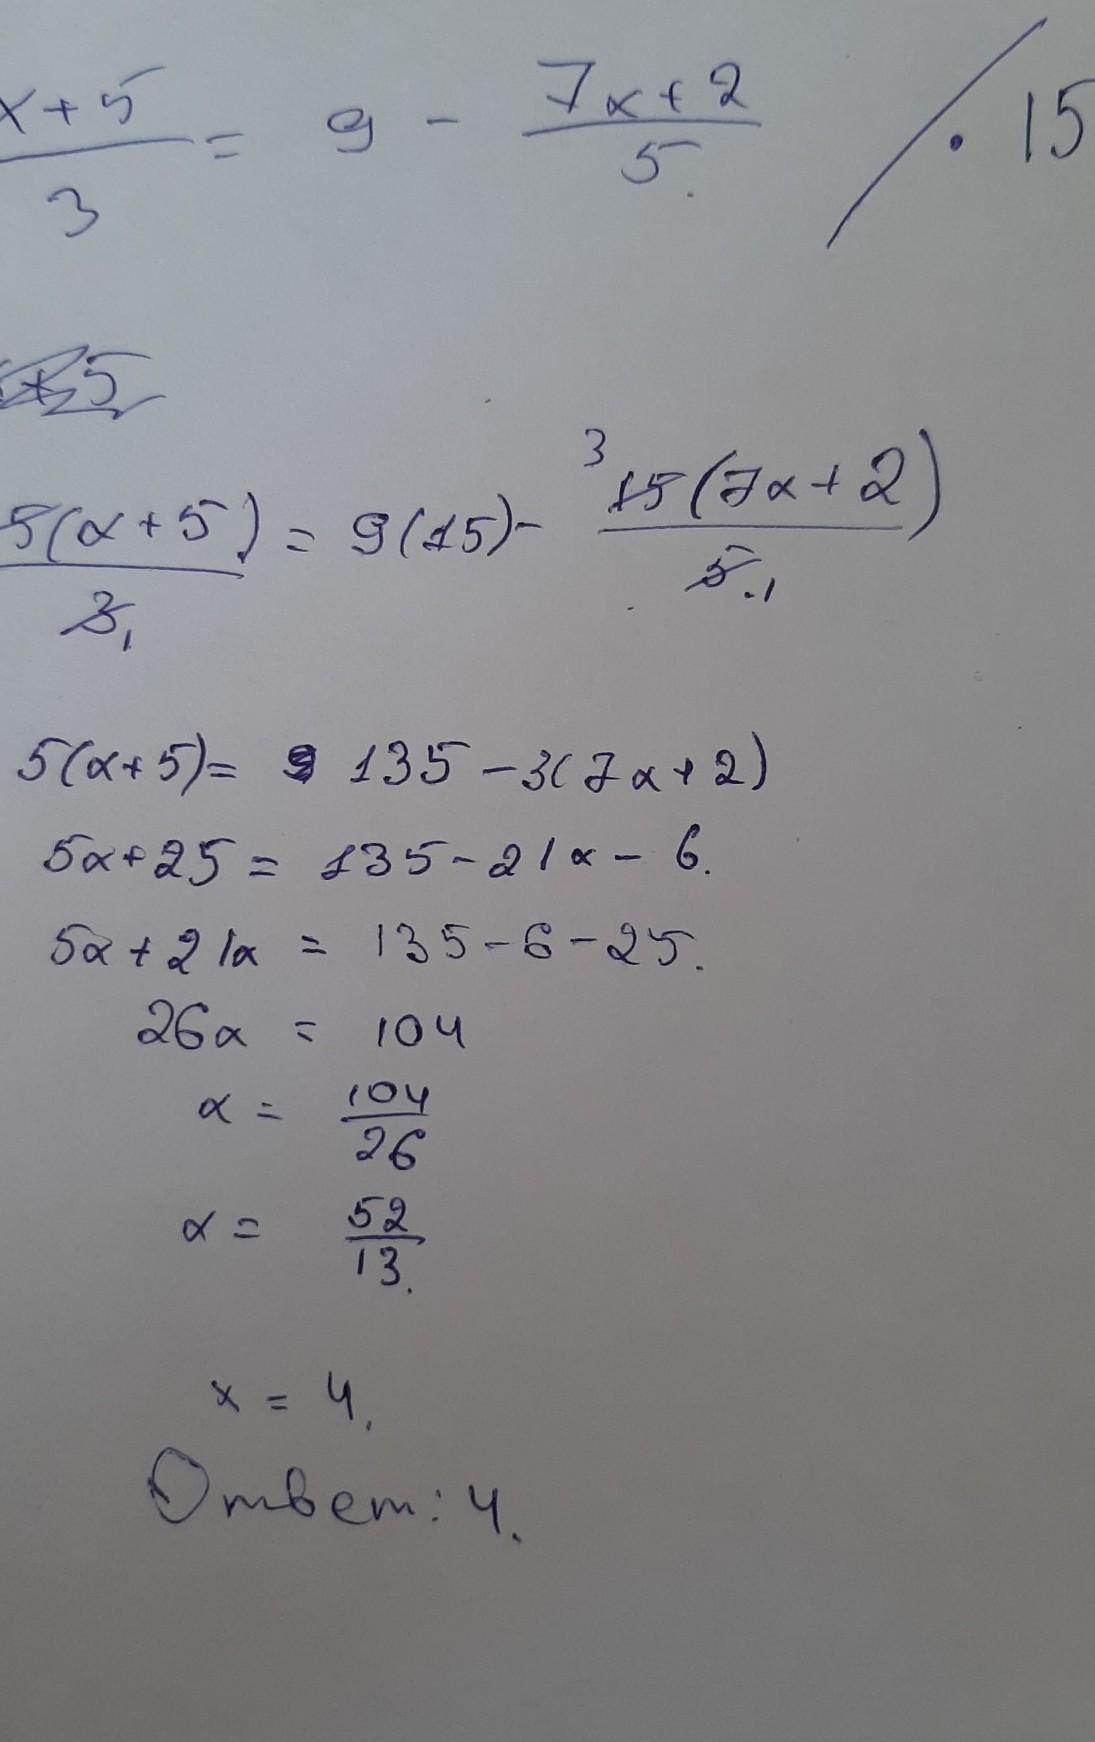 x+5/3 = 9 - 7x+2/5. / · 15
+5
5(x+5)/3 1 = 9(15)- 3 15(7x+2)/5.1
5(x+5)= 9 135-3(7x+2)
5x+25 = 135-21x-6.
5x+21x = 135-6-25.
26x = 104
x = 104/26
x = 52/13.
x = 4.
Ответ: 4.